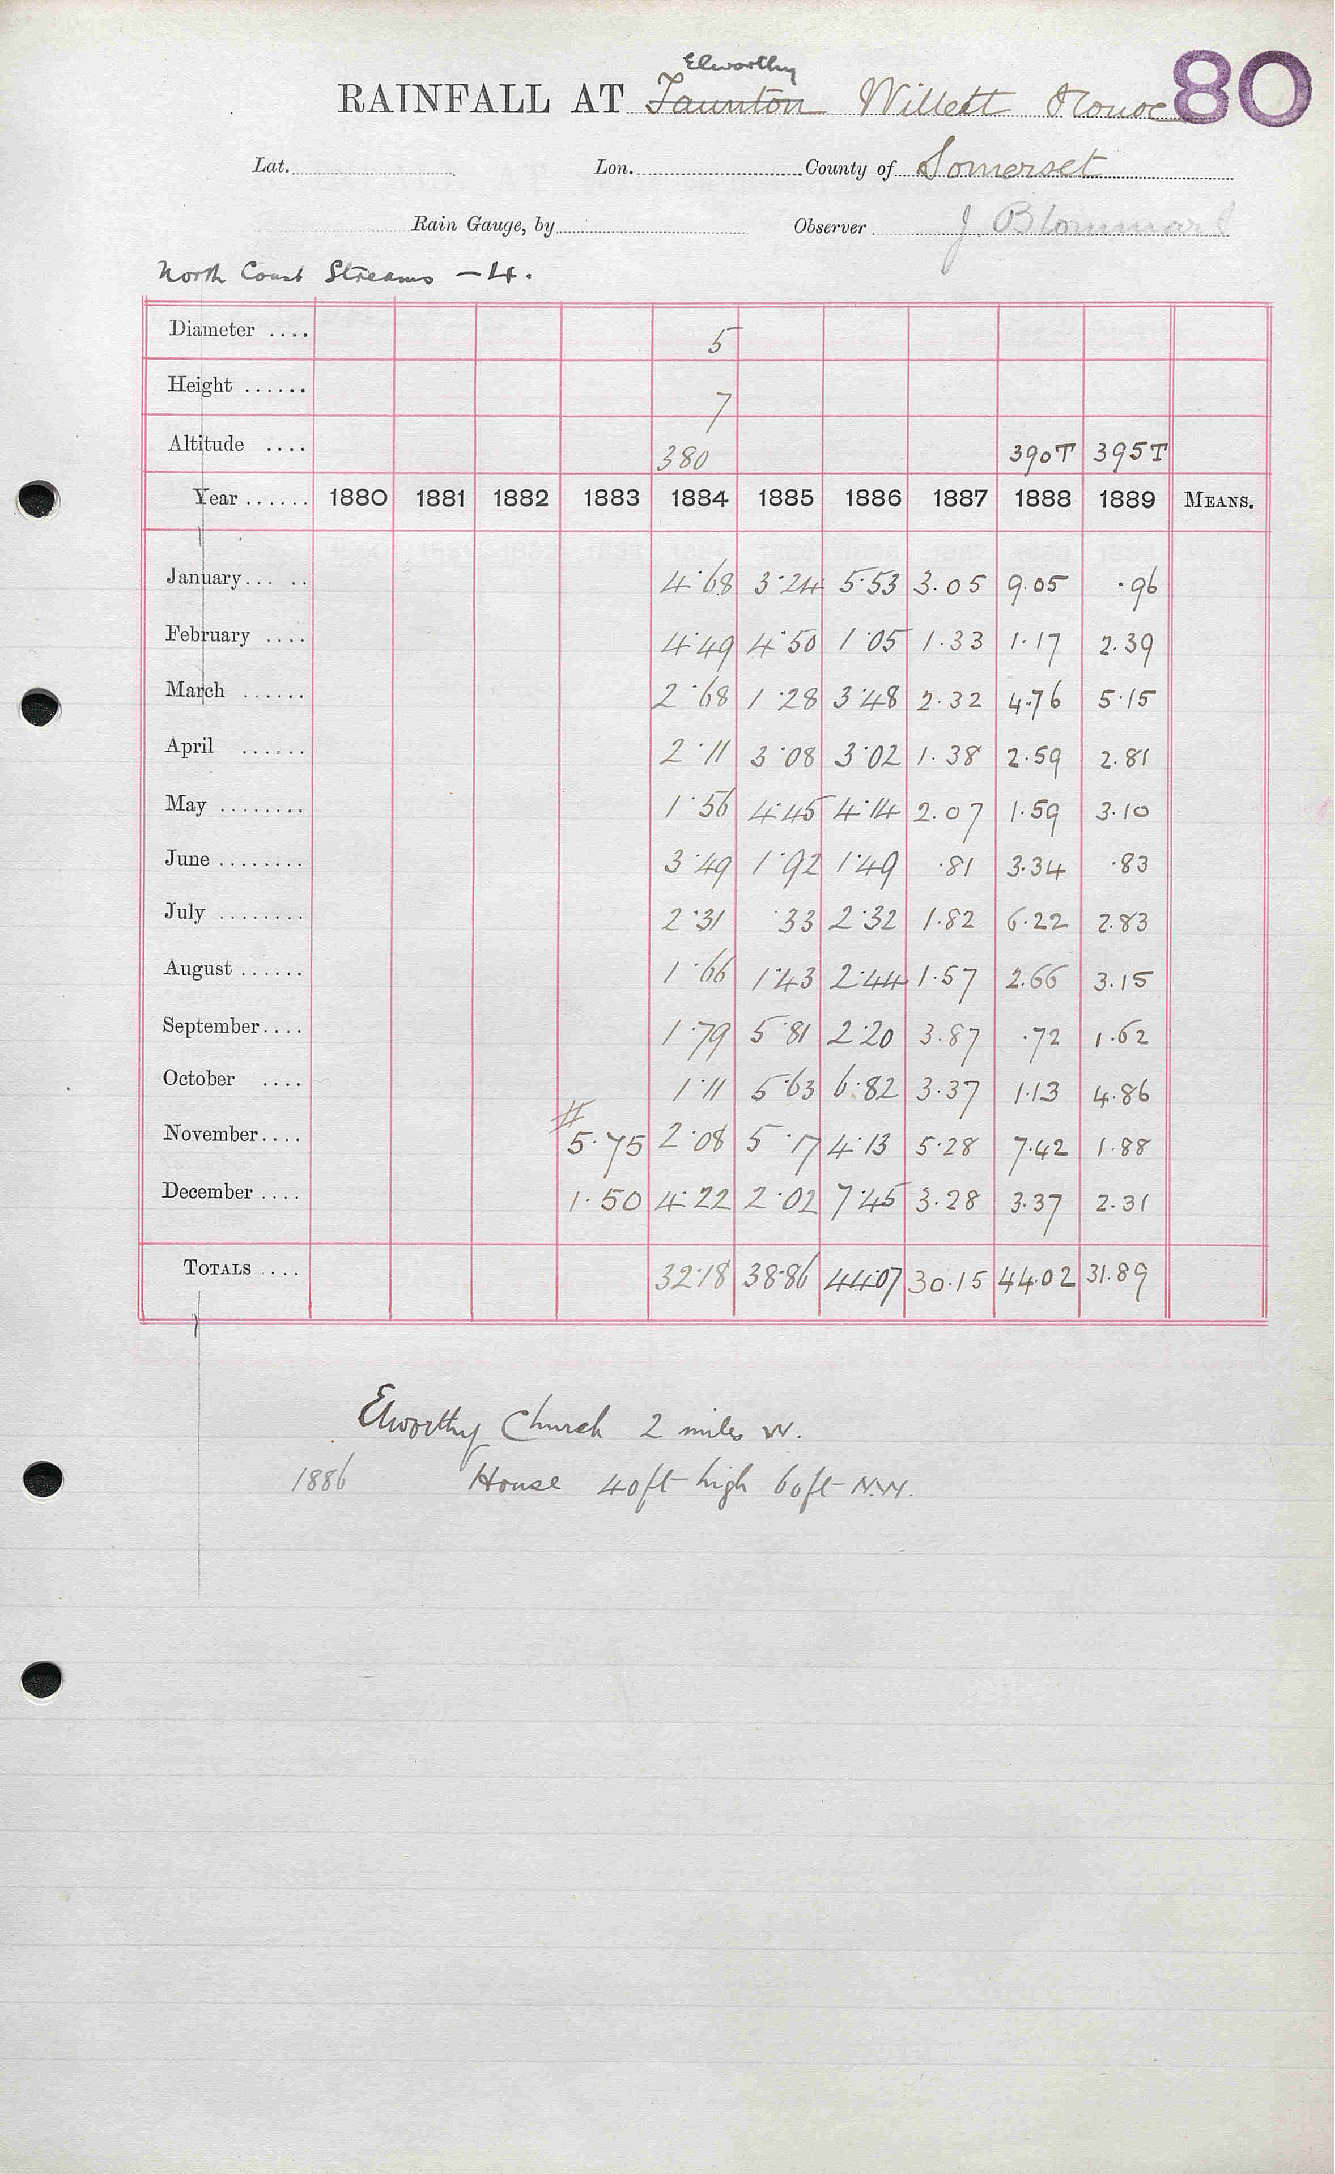 Elworthy
RAINFALL AT Taunton Willett House 80
Lat. Lon. County of Somerset
Rain Gauge, by Observer J Blommart
North Coast Streams - 4.
Diameter .... 5
Height ...... 7
Altitude .... 380 390T 395T
Year ...... 1880 1881 1882 1883 1884 1885 1886 1887 1888 1889 MEANS.
January... .. 4.68 3.24 5.53 3.05 9.05 .96
February .... 4.49 4.50 1.05 1.33 1.17 2.39
March ...... 2.68 1.28 3.48 2.32 4.76 5.15
April ...... 2.11 3.08 3.02 1.38 2.59 2.81
May ........ 1.56 4.45 4.14 2.07 1.59 3.10
June ........ 3.49 1.92 1.49 .81 3.34 .83
July ........ 2.31 .33 2.32 1.82 6.22 2.83
August ...... 1.66 1.43 2.44 1.57 2.66 3.15
September.... 1.79 5.81 2.20 3.87 .72 1.62
October .... 1.11 5.63 6.82 3.37 1.13 4.86
November.... # 5.75 2.08 5.17 4.13 5.28 7.42 1.88
December .... 1.50 4.22 2.02 7.45 3.28 3.37 2.31
TOTALS .... 32.18 38.86 44.07 30.15 44.02 31.89
Elworthy Church 2 miles W.
1886 House 40ft high 60ft N.W.